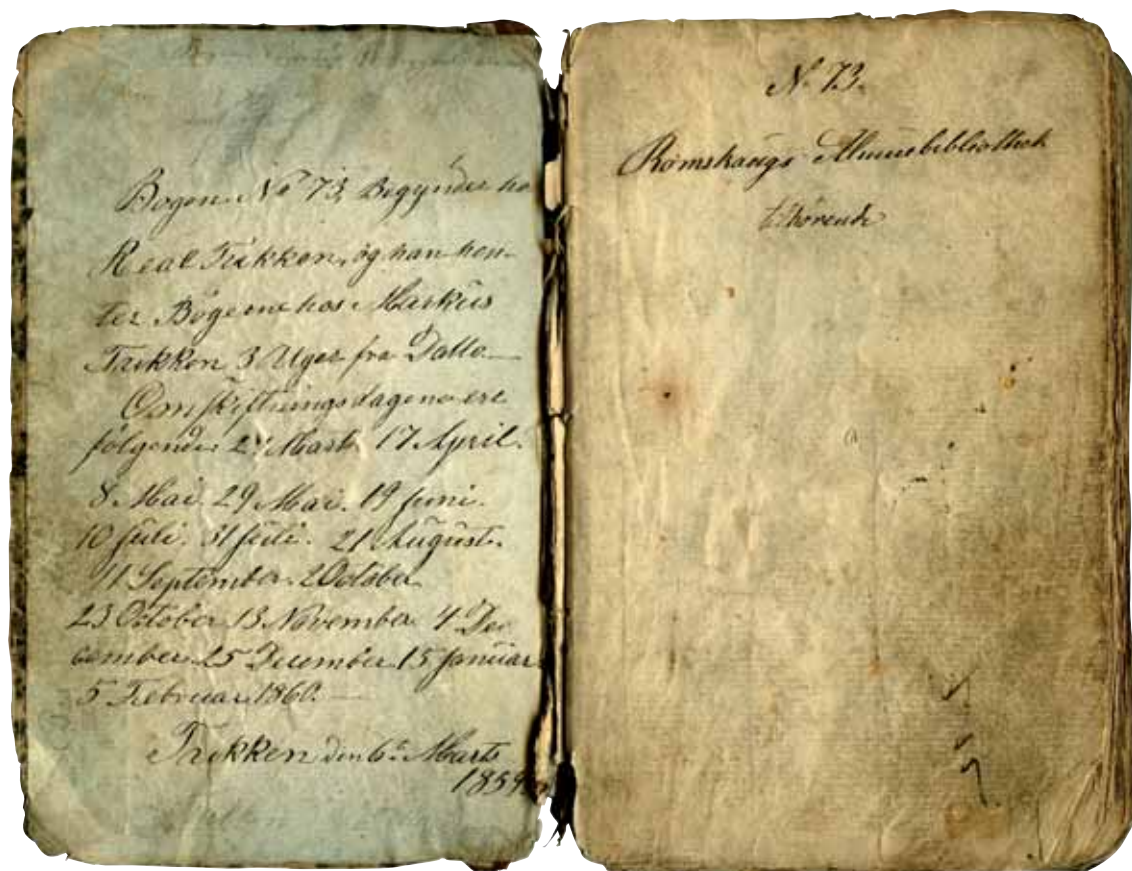 Bogen No 73, Begynder ho
Real Trikken, og han hen-
ter Bøgerne hos Markus
Trikken 3 Uger fra Datto—
Omskiftningsdagene ere
følgende 27 Marts 17 April.
8 Mai. 29 Mai. 19 Juni.
10 Juli. 31 Juli. 21 August.
11 September. 2 October
23 October 13 November 4 De
cember 25 December 15 Januar
5 Februar 1860.—
Trikken den 6te Marts
1859
N. 73.
Römskougs Almuebibliothek
tilhørende